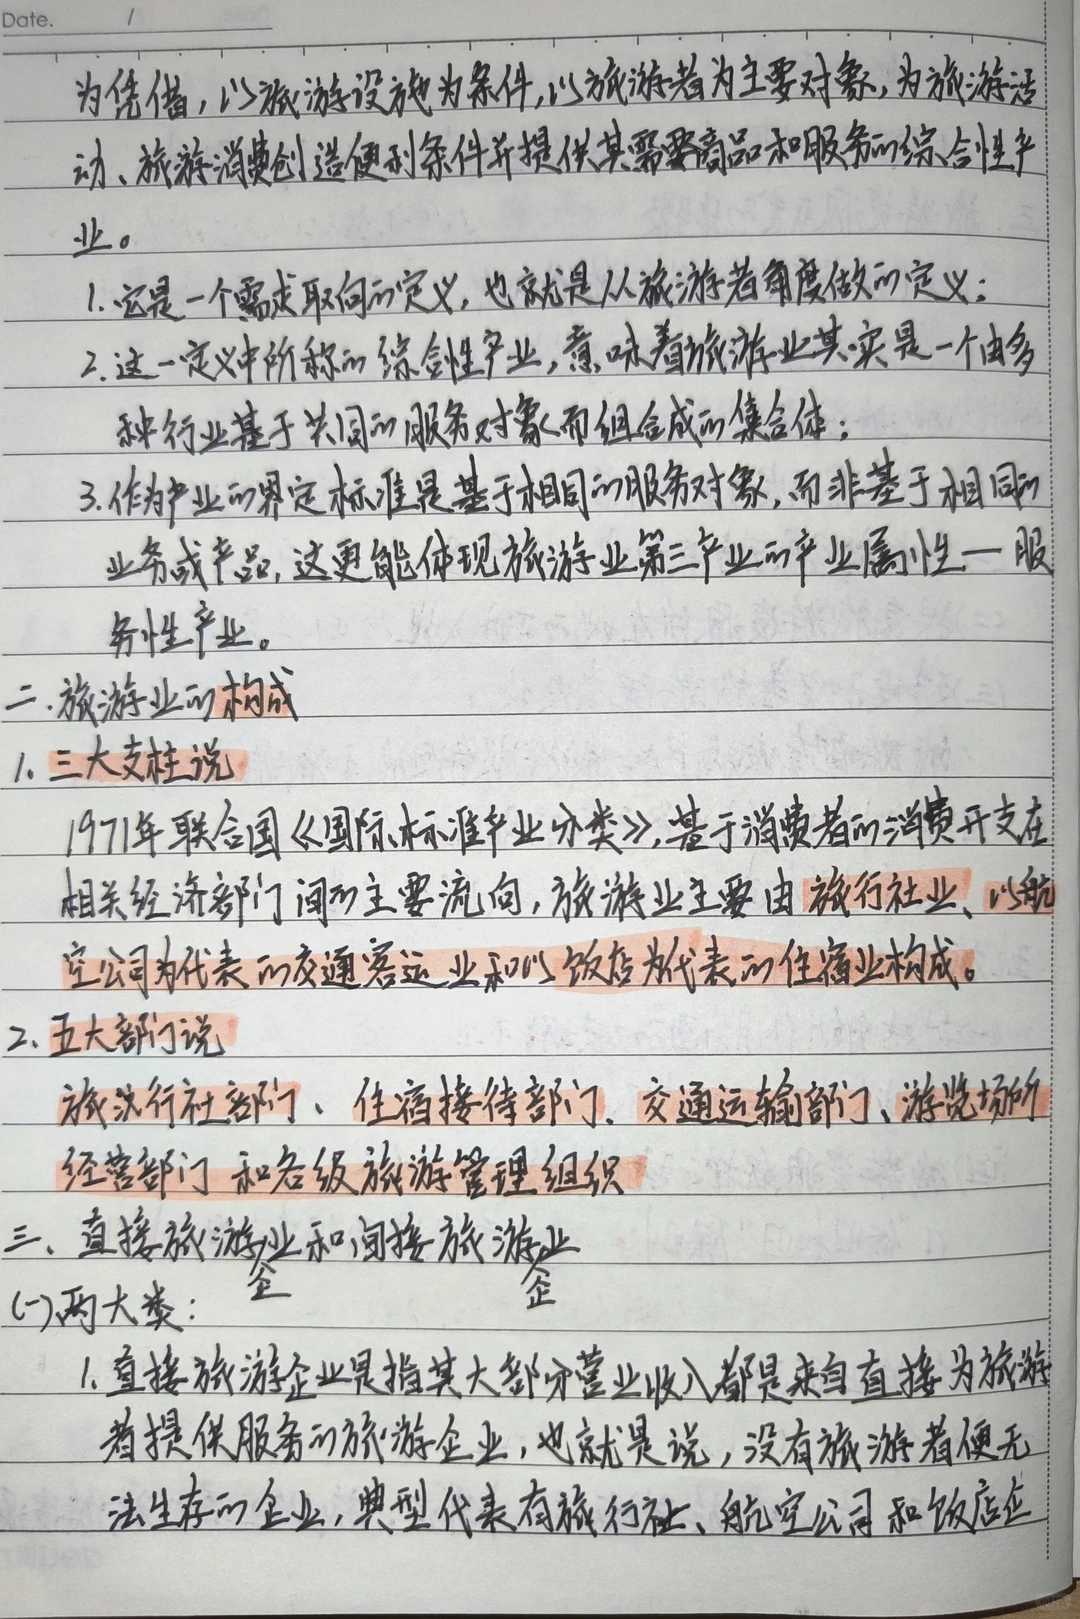 Date. /
为凭借，以旅游设施为条件，以旅游者为主要对象，为旅游活
动、旅游消费创造便利条件并提供其需要商品和服务的综合性产
业。
1. 它是一个需求取向的定义，也就是从旅游者角度做的定义；
2. 这一定义中所称的综合性产业，意味着旅游业其实是一个由多
种行业基于共同的服务对象而组合成的集合体；
3. 作为产业的界定标准是基于相同的服务对象，而非基于相同的
业务或产品，这更能体现旅游业第三产业的产业属性—服
务性产业。
二. 旅游业的构成
1. 三大支柱说
1971年联合国《国际标准产业分类》，基于消费者的消费开支在
相关经济部门间的主要流向，旅游业主要由旅行社业、以航
空公司为代表的交通客运业和以饭店为代表的住宿业构成。
2、五大部门说
旅游行社部门、住宿接待部门、交通运输部门、游览场所
经营部门和各级旅游管理组织
三、直接旅游企业和间接旅游企业
(一)、两大类：
1. 直接旅游企业是指其大部分营业收入都是来自直接为旅游
者提供服务的旅游企业，也就是说，没有旅游者便无
法生存的企业，典型代表有旅行社、航空公司和饭店企